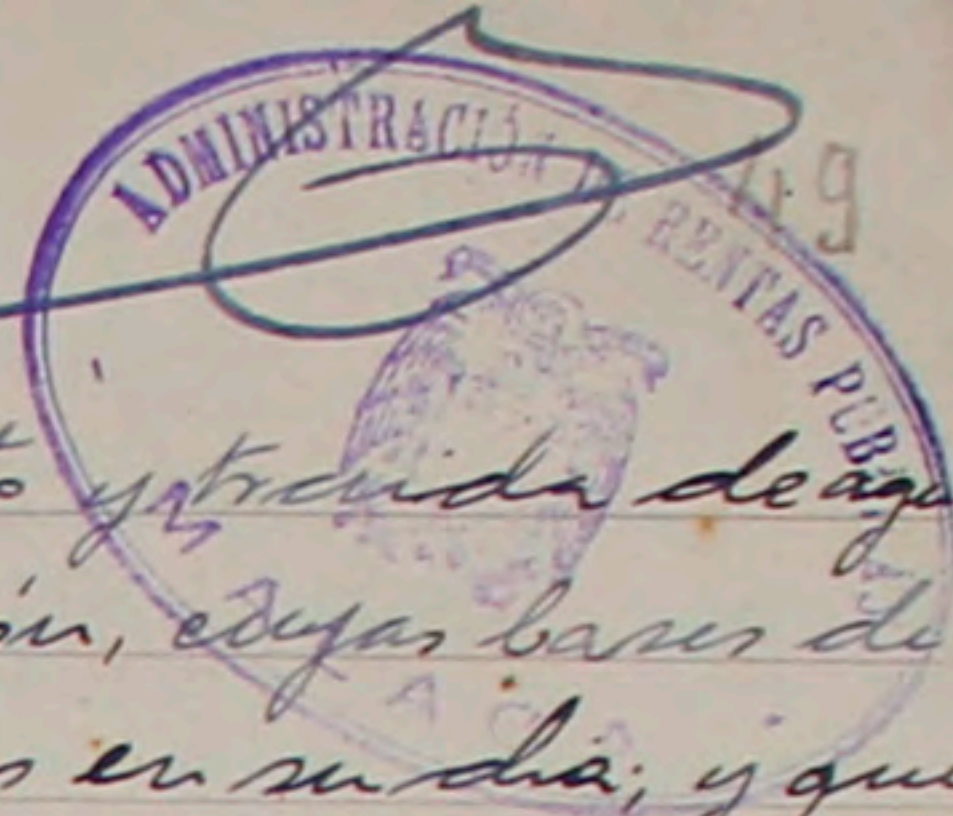 ADMINISTRACIÓN DE RENTAS PÚB
49
y traida de agu
ón, cuyas bases de
s en su dia; y que